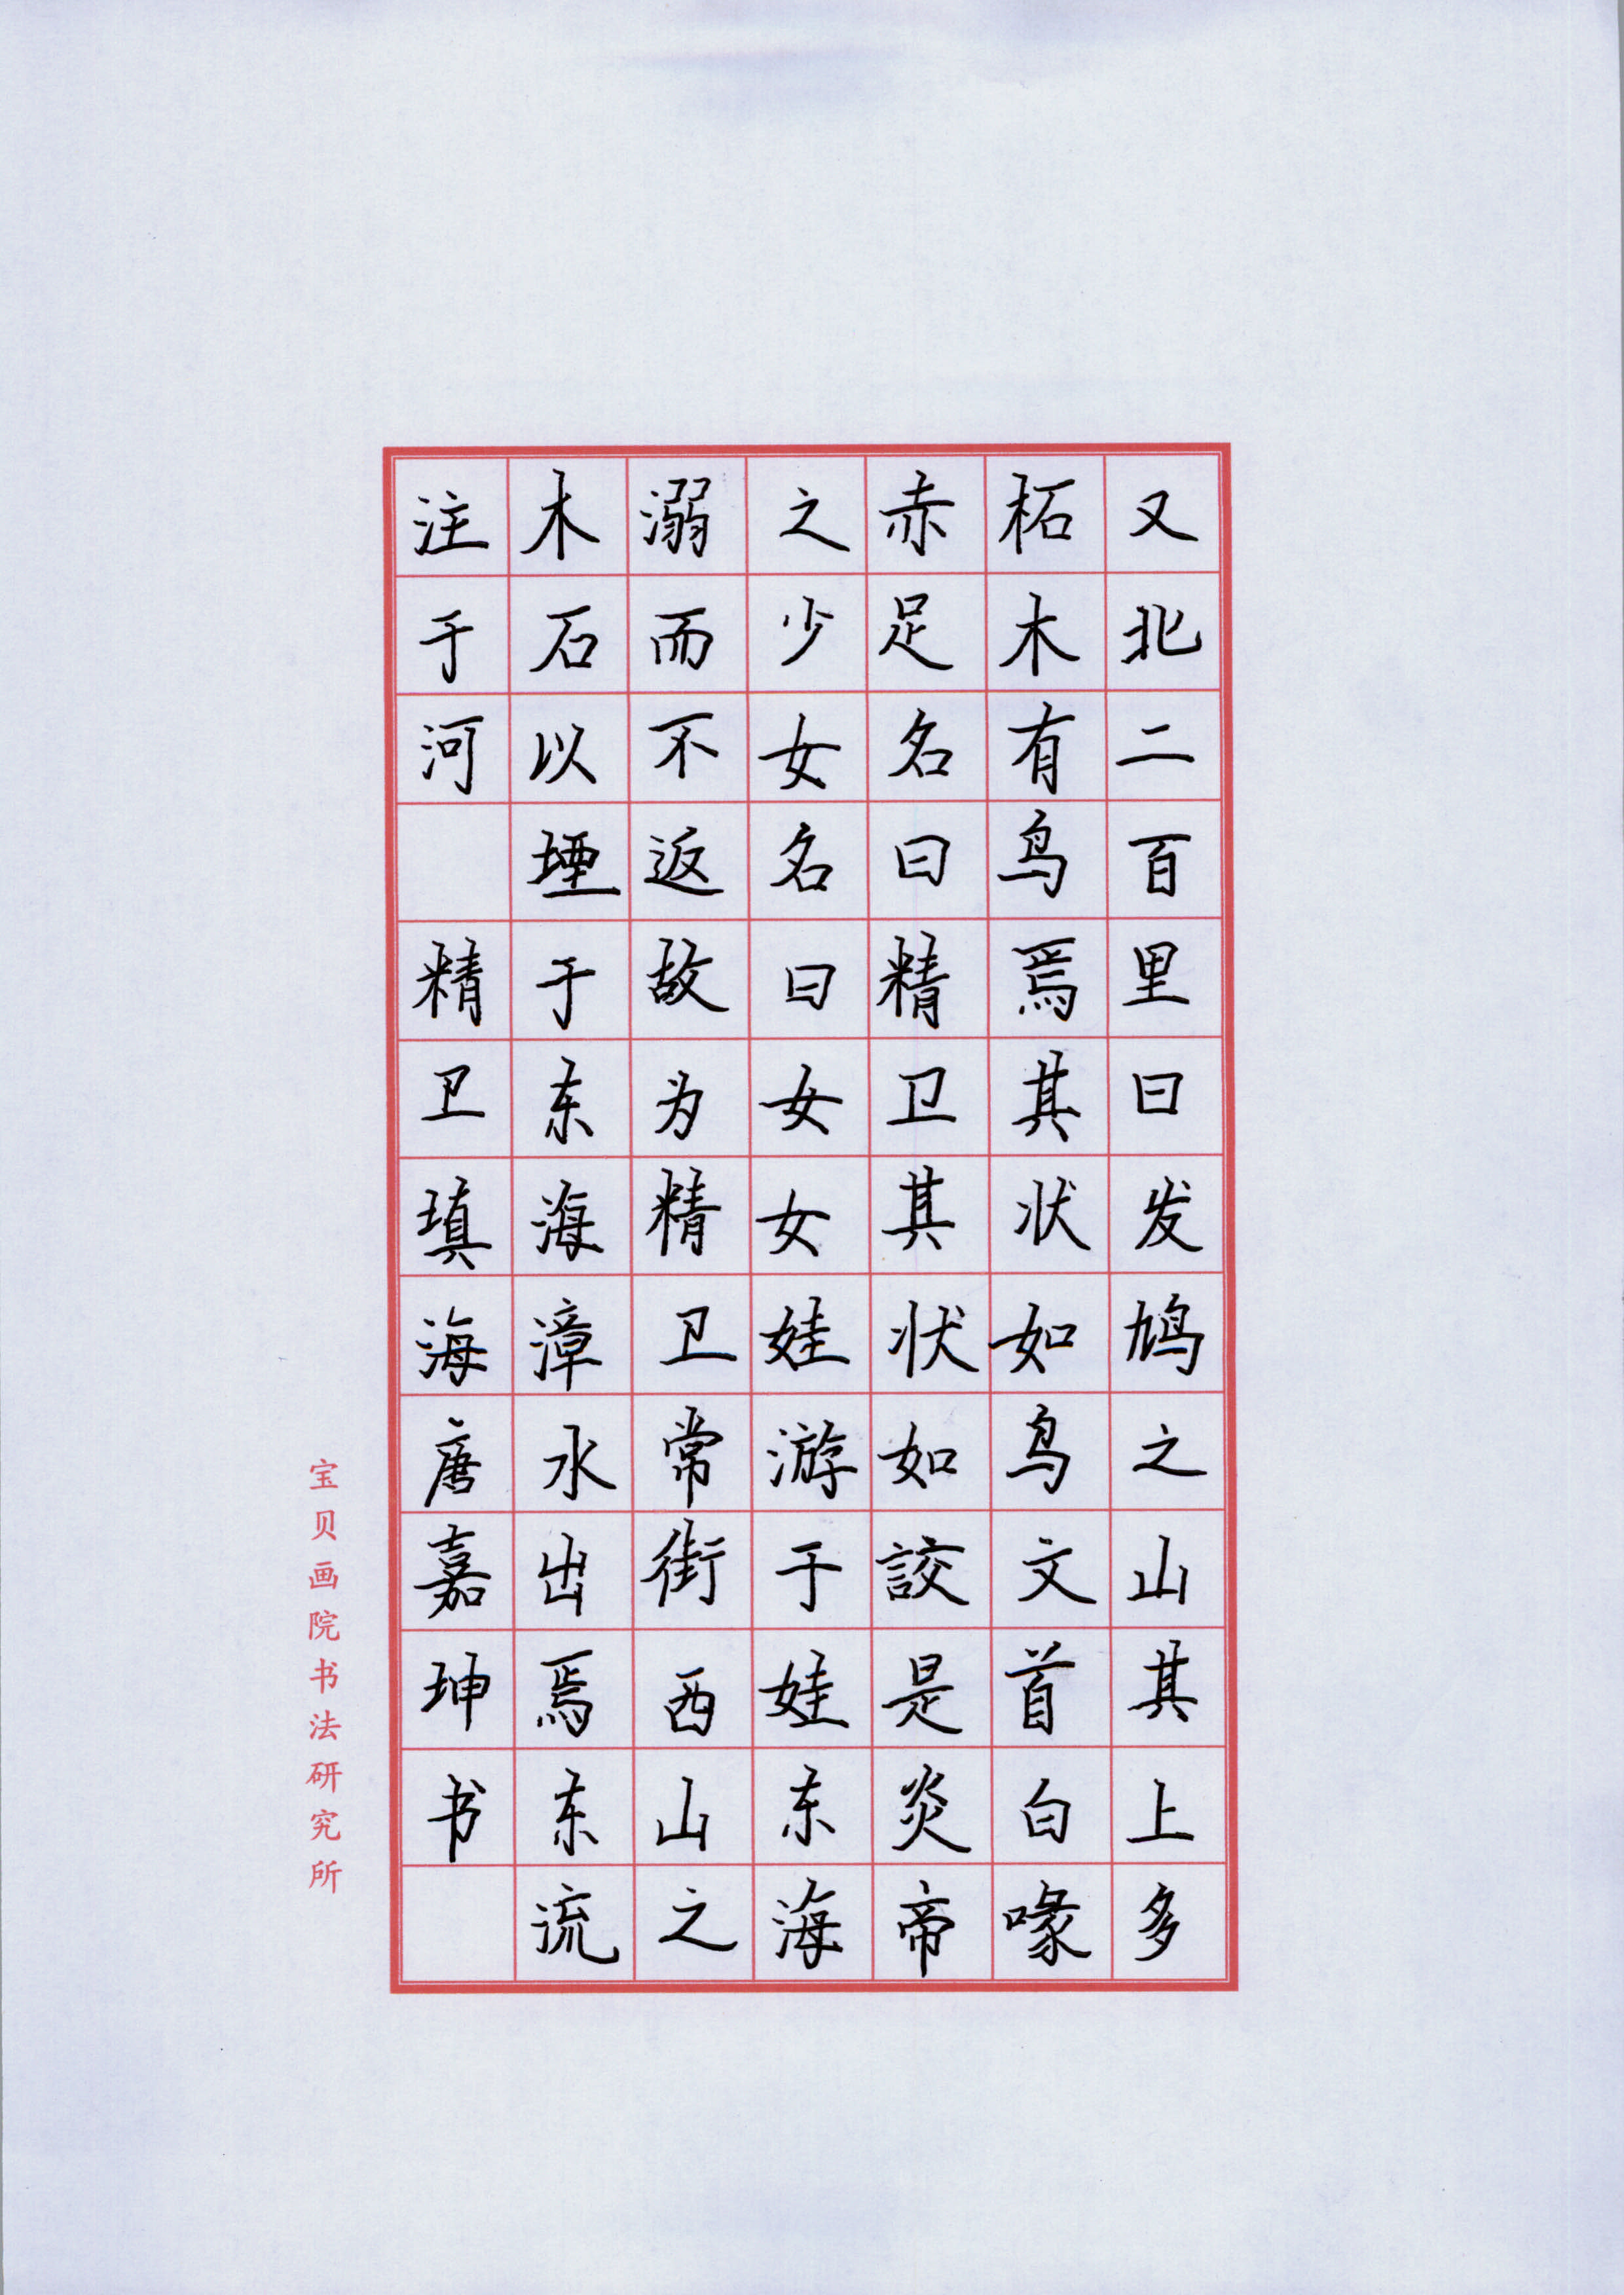 又北二百里曰发鸠之山其上多
柘木有鸟焉其状如鸟文首白喙
赤足名曰精卫其状如詨是炎帝
之少女名曰女女娃游于娃东海
溺而不返故为精卫常街西山之
木石以堙于东海漳水出焉东流
注于河 精卫填海唐嘉坤书
宝贝画院书法研究所